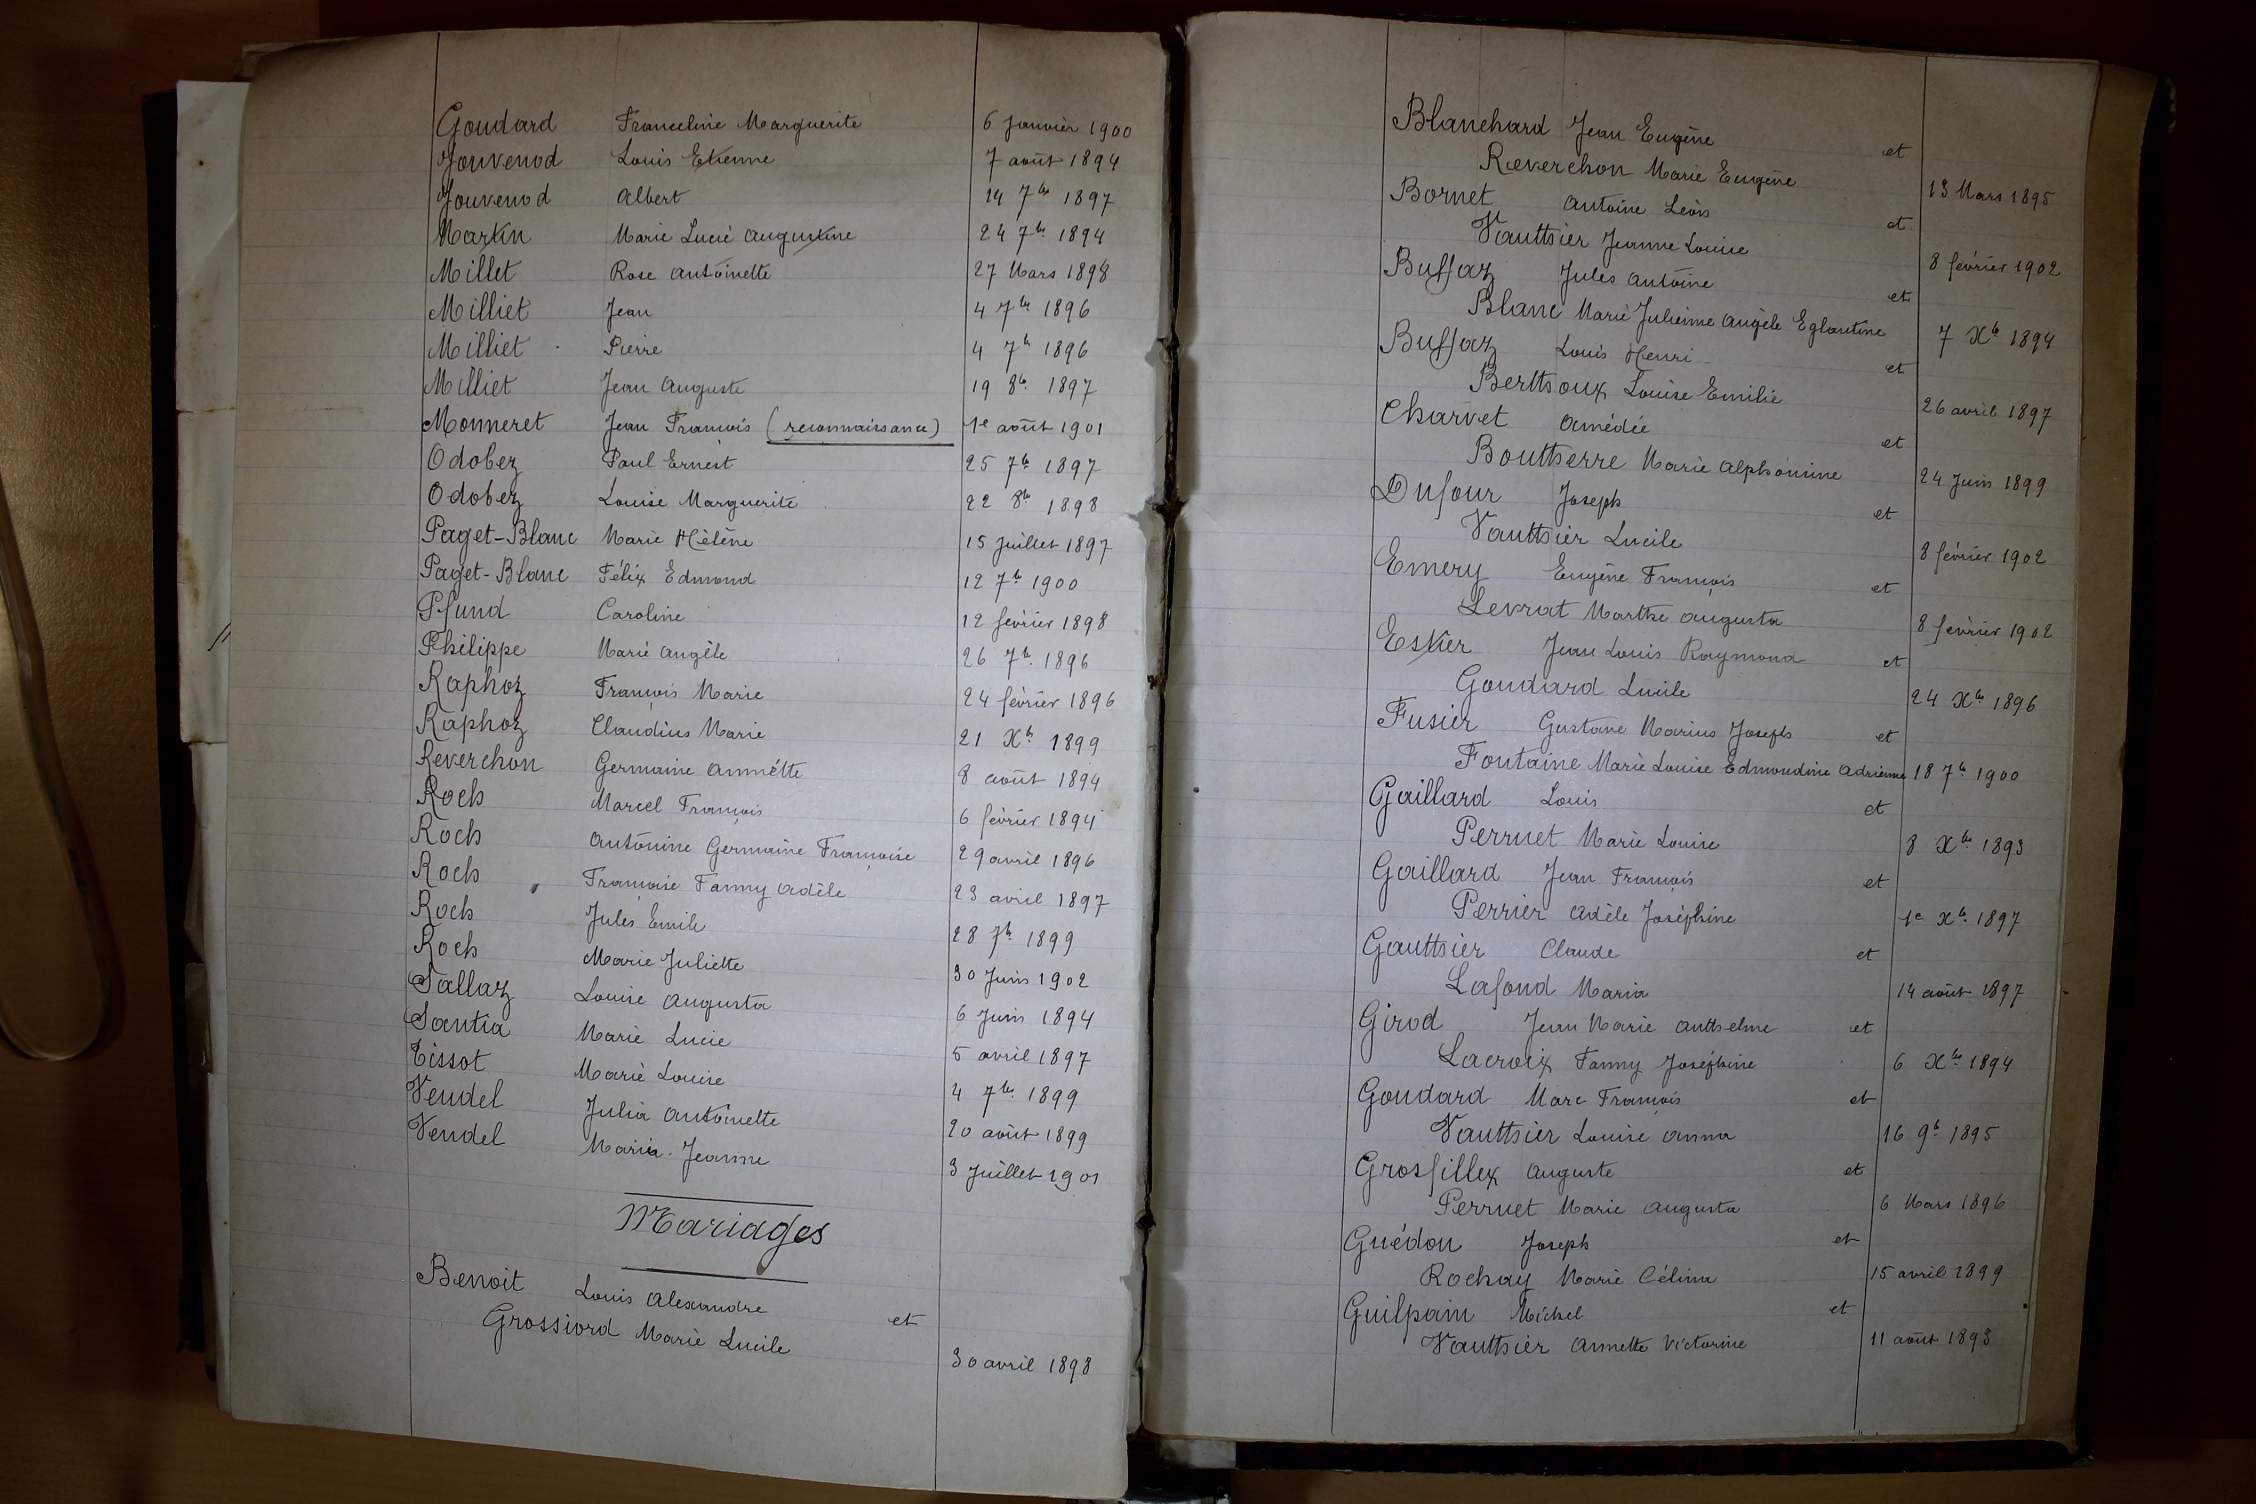 Goudard Franceline Marguerite 6 Janvier 1900
Jouvenod Louis Etienne 7 août 1894
Jouvenod Albert 24 7bre 1897
Martin Marie Lucie Augustine 24 7bre 1894
Millet Rose Antoinette 27 Mars 1898
Milliet Jean 4 7bre 1896
Milliet Pierre 4 7bre 1896
Milliet Jean Auguste 19 8bre 1897
Monneret Jean François (reconnaissance) 1e août 1901
Odobez Paul Ernest 25 7bre 1897
Odobez Louise Marguerite 22 8bre 1898
Paget-Blanc Marie Hélène 15 Juillet 1897
Paget-Blanc Félix Edmond 12 7bre 1900
Pfund Caroline 12 février 1898
Philippe Marie Angèle 26 7bre 1896
Raphoz François Marie 24 février 1896
Raphoz Claudius Marie 21 Xbre 1899
Reverchon Germaine Annette 8 août 1894
Roch Marcel François 6 février 1894
Roch Antonine Germaine Françoise 29 avril 1896
Roch Françoise Fanny Adèle 23 avril 1897
Roch Jules Emile 28 7bre 1899
Roch Marie Juliette 30 Juin 1902
Sallaz Louise Augusta 6 Juin 1894
Santia Marie Lucie 5 avril 1897
Tissot Marie Louise 4 7bre 1899
Vendel Julia Antoinette 20 août 1899
Vendel Maria Jeanne 3 Juillet 1901
Mariages
Benoit Louis Alexandre et
Grossiord Marie Lucile 30 avril 1898
Blanchard Jean Eugène et
Reverchon Marie Eugène 13 Mars 1895
Bornet Antoine Léon et
Vauthier Jeanne Louise 8 février 1902
Buffaz Jules Antoine et
Blanc Marie Julienne Angèle Eglantine 7 Xbre 1894
Buffaz Louis Henri et
Berthoux Louise Emilie 26 avril 1897
Charvet Amédée et
Boutherre Marie Alphonsine 24 Juin 1899
Dufour Joseph et
Vauthier Lucile 8 février 1902
Emery Eugène François et
Levrat Marthe Augusta 8 février 1902
Estier Jean Louis Raymond et
Goudard Lucile 24 Xbre 1896
Fusier Gustave Marius Joseph et
Fontaine Marie Louise Edmondine Adrienne 18 7bre 1900
Gaillard Louis et
Perruet Marie Louise 8 Xbre 1893
Gaillard Jean François et
Perrier Adèle Joséphine 1e Xbre 1897
Gauthier Claude et
Lafond Maria 14 août 1897
Girod Jean Marie Anthelme et
Lacroix Fanny Joséphine 6 Xbre 1894
Goudard Marc François et
Vauthier Louise Anna 16 9bre 1895
Grosfillex Auguste et
Perruet Marie Augusta 6 Mars 1896
Guédon Joseph et
Rochay Marie Célina 15 avril 1899
Guilpain Michel et
Vauthier Annette Victorine 11 août 1893